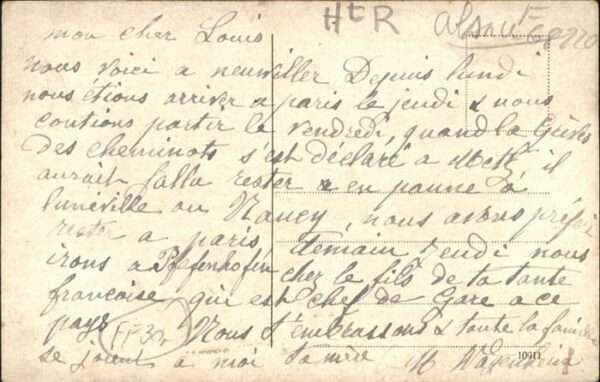 HtR
Alsace F 68220
mon cher Louis
nous voici a neuviller Depuis lundi
nous étions arriver a paris le jeudi & nous
contions partir le vendredi, quand la Grève
des cheminots s'est déclaré a Metz, il
aurait fallu rester en panne à
luneville ou Nancy, nous avons préféré
rester a paris, demain Jeudi nous
irons a Pfafenhofen cher le fils de ta tante
françoise qui est chef de Gare a ce
pays Nous t'embrassons & toute la famille
FF30,
se joint à moi ta mère M
10911